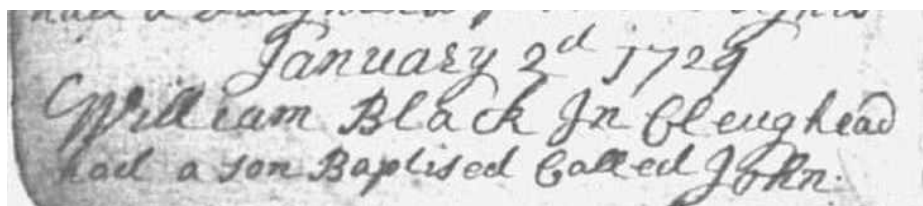 had a
January 2d 1729
William Black In Cleughead
had a son Baptised Called John.